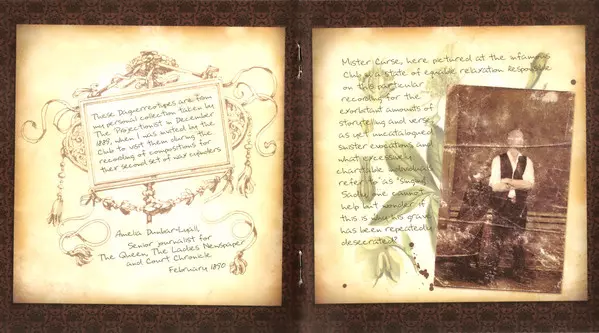 These Daguerreotypes are from
my personal collection taken by
The Projectionist in December
1889, when I was invited by the
Club to visit them during the
recording of compositions for
their second set of wax cylinders
Amelia Dunbar-Lyall,
Senior journalist for
The Queen, The Ladies Newspaper
and Court Chronicle
February 1890
Mister Curse, here pictured at the infamous
Club in a state of equable relaxation. Responsible
on this particular
recording for the
exorbitant amounts of
storytelling and verse,
as yet uncatalogued
sinister evocations and
what excessively
charitable
refer to as "singing"
Sadly one cannot
help but wonder if
this is why his grave
has been repeatedly
desecrated?